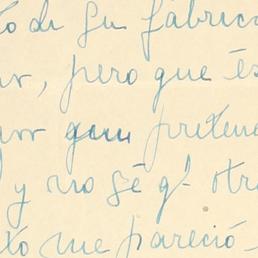 o de su fábric
, pero que és
que preten
y no sé q' otr
to me pareció